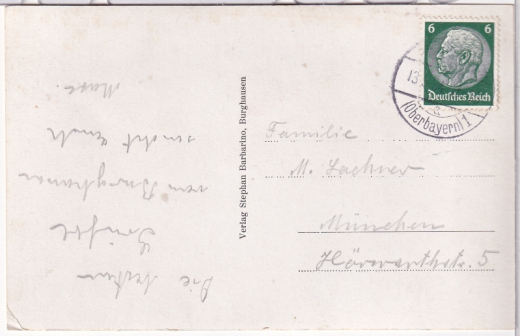 Die besten
Grüße
von Burghausen
sendet Euch
Max.
Verlag Stephan Barbarino, Burghausen
6 6
Deutsches Reich
13.
(Oberbayern) 1
Familie
M. Lachner
München
Hörwarthstr. 5